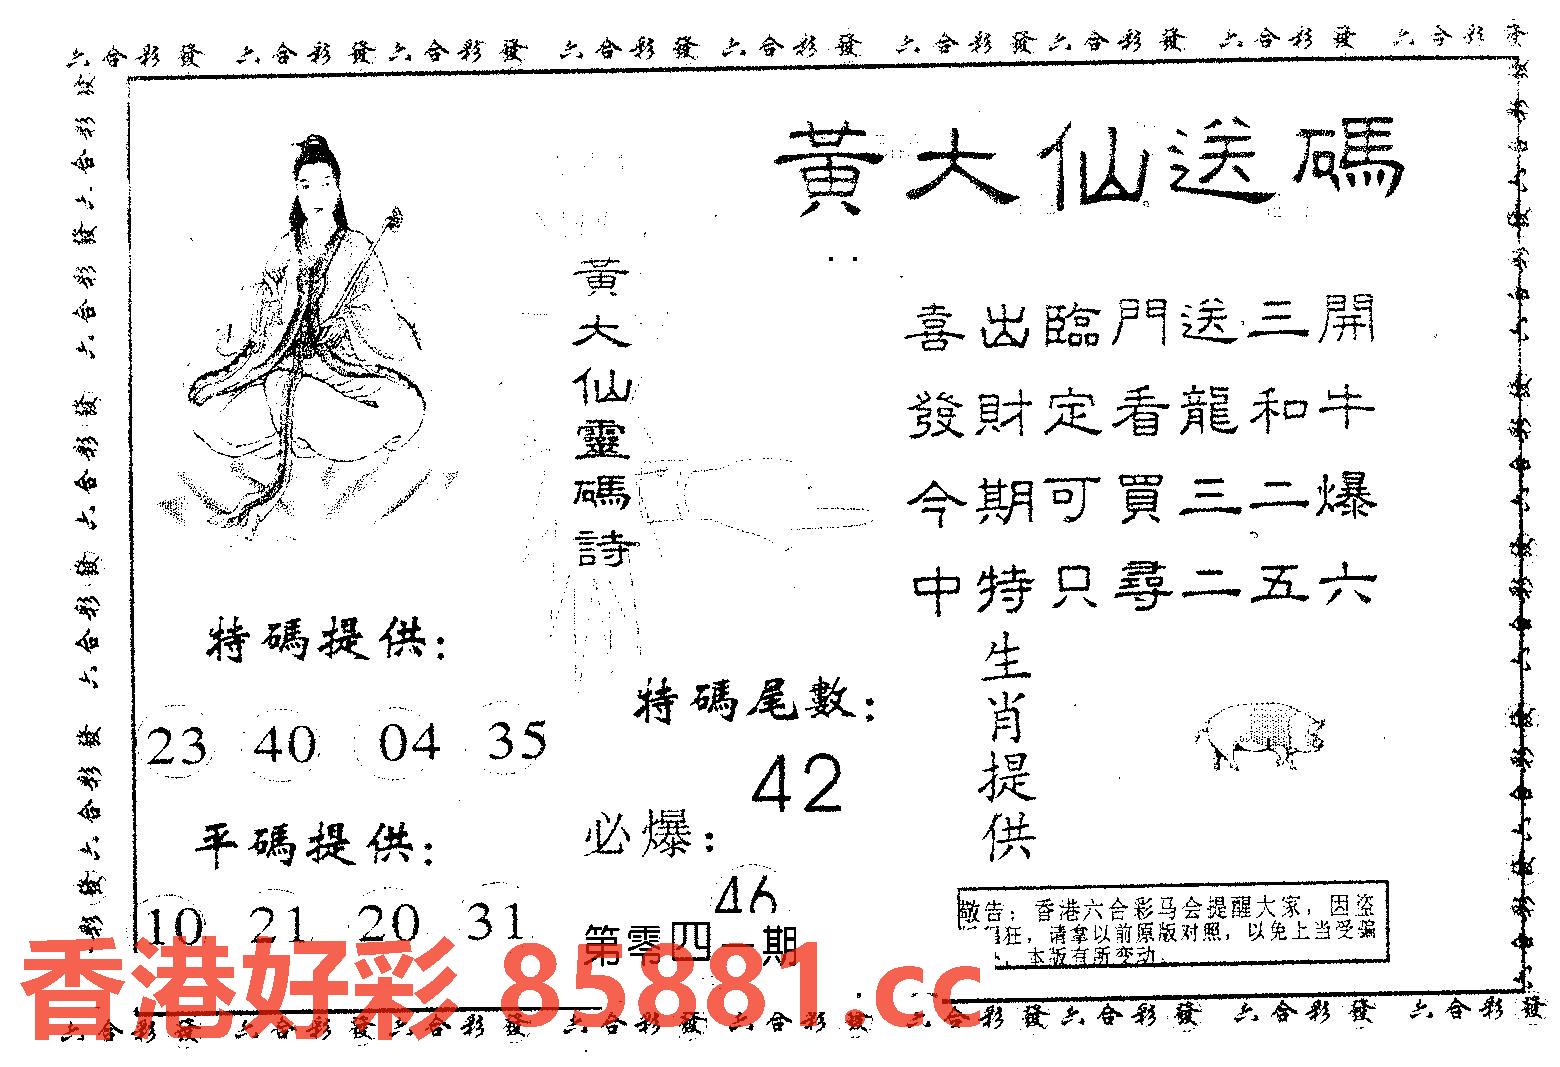 六合彩發 六合彩發 六合彩發 六合彩發 六合彩發 六合彩發 六合彩發 六合彩發 六合彩發
黃大仙送碼
黃大仙靈碼詩
喜出臨門送三開
發財定看龍和牛
今期可買三二爆
中特只尋二五六
特碼提供：
23 40 04 35
平碼提供：
10 21 20 31
特碼尾數：
42
必爆：
46
第零四一期
生肖提供
敬告：香港六合彩马会提醒大家，因盗
狂，请拿以前原版对照，以免上当受骗
本版有所变动.
香港好彩 85881.cc
六合彩發 六合彩發 六合彩發 六合彩發 六合彩發 六合彩發 六合彩發 六合彩發 六合彩發